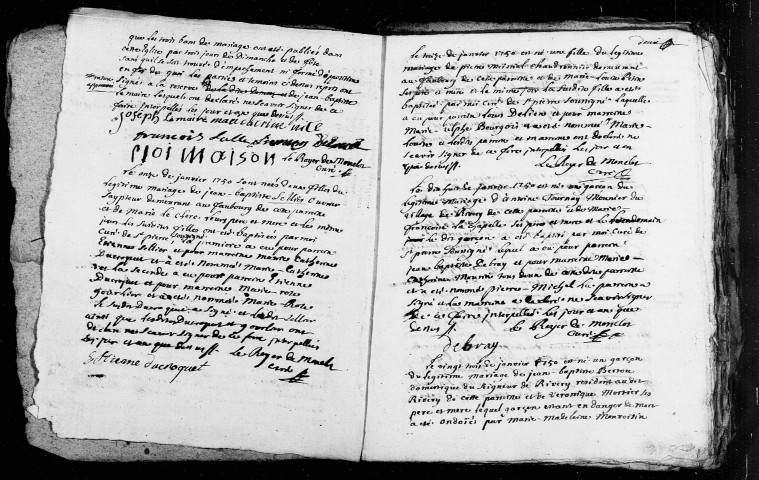 que les trois bans de mariages ont été publiés dans
cette église par trois jours de dimanche et de fête
sans qu'il se soit trouvé d'impeschement ni formé d'opposition
en foy de quoi les parties et temoins ci dessus repris ont
signé a la reserve de jean baptiste
le maire lesquels ont declaré ne scavoir signer de ce
faire interpellés les jour et an que dessus
Joseph Lemaitre
francois Salle
Eloi MAISON Le Royer de Monclos
curé
Le onze de janvier 1750 sont nées deux filles du
legitime mariage de jean baptiste Sellier ouvrier
Saypteur demeurant au faubourg de cette paroisse
et de Marie le Clerc leur pere et mere et le même
jour les susdites filles ont été baptisées par moi
Curé de St pierre soussigné la premiere a eu pour parrein
Etienne Sellier et pour marreine marie Catherine
Ducroquet et a été nommée Marie Catherine
et la seconde a eu pour parrein Etienne
Ducroquet et pour marreine Marie rose
gourlier et a été nommée Marie Rose
le susdit Ducroquet a signé et ledit Sellier
ainsi que lesdittes Ducroquet et gourlier ont
declaré ne scavoir signer de ce faire interpellés
les jour et an que dessus Le Royer de Monclos
Etienne ducroquet curé
deux
Le treize de janvier 1750 est née une fille du legitime
mariage de pierre michel chaudronnier demeurant
au faubourg de cette paroisse et de Marie Louise
ses pere et mere et le même jour la susditte fille a été
baptisée par moi curé de St pierre soussigné laquelle
a eu pour parrein Louis Deliens et pour marreine
Marie Bourgois et a été nommée Marie
Louise et lesdits parrein et marreine ont declaré ne
scavoir signer de ce faire interpellés les jour et an
que dessus Le Royer de Monclos
curé
Le dix huit de janvier 1750 est né un garçon du
legitime Mariage d'antoine Tournay Meunier du
village de Rivery de cette paroisse et de Marie
françoise la Chapelle ses pere et mere et le lendemain
le dit garçon a été baptisé par moi Curé de
St pierre soussigné lequel a eu pour parrein
jean baptiste Debray et pour marreine Marie
Catherine Mourin tous deux de cette paroisse
et a été nommé pierre Michel le parrein a
signé et la marreine a declaré ne scavoir signer
de ce faire interpellés les jour et an que
dessus Le Royer de Monclos
Debray curé
Le vingt trois de janvier 1750 est né un garçon
du legitime mariage de jean baptiste Berton
domestique du seigneur de Rivery resident audit
Rivery de cette paroisse et de veronique Mortier ses
pere et mere lequel garçon etant en danger de mort
a été ondoié par marie Madeleine